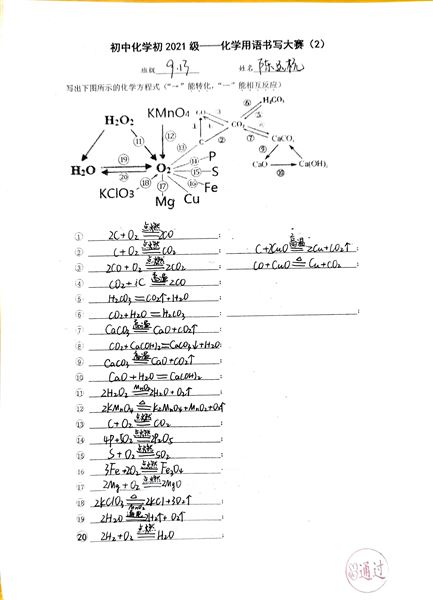 初中化学初 2021 级——化学用语书写大赛（2）
班级 9.13 姓名
写出下图所示的化学方程式（“→”能转化，“—”能相互反应）
H₂O₂ KMnO₄ CO₂ H₂CO₃
⑪ ⑫ ② ⑥ ⑦ CaCO₃
H₂O ⑲ ⑳ O₂ C ⑬ ⑨
⑭ P CaO Ca(OH)₂
⑮ S ⑩
KClO₃ ⑱ ⑰ ⑯ Fe
Mg Cu
① 2C+O₂ 点燃 2CO ;
② C+O₂ 点燃 CO₂ ; C+2CuO 高温 2Cu+CO₂↑
③ 2CO+O₂ 点燃 2CO₂ ; CO+CuO △ Cu+CO₂
④ CO₂+C 高温 2CO
⑤ H₂CO₃=CO₂↑+H₂O
⑥ CO₂+H₂O=H₂CO₃ ;
⑦ CaCO₃ 高温 CaO+CO₂↑ ;
⑧ CO₂+Ca(OH)₂=CaCO₃↓+H₂O ;
⑨ CaCO₃ 高温 CaO+CO₂↑ ;
⑩ CaO+H₂O=Ca(OH)₂ ;
⑪ 2H₂O₂ MnO₂ 2H₂O+O₂↑ ;
⑫ 2KMnO₄ △ K₂MnO₄+MnO₂+O₂↑ ;
⑬ C+O₂ 点燃 CO₂ ;
⑭ 4P+5O₂ 点燃 2P₂O₅ ;
⑮ S+O₂ 点燃 SO₂ ;
16 3Fe+2O₂ 点燃 Fe₃O₄
17 2Mg+O₂ 点燃 2MgO
18 2KClO₃ △ MnO₂ 2KCl+3O₂↑ ;
⑲ 2H₂O 通电 2H₂↑+O₂↑ ;
20 2H₂+O₂ 点燃 H₂O ;
通过